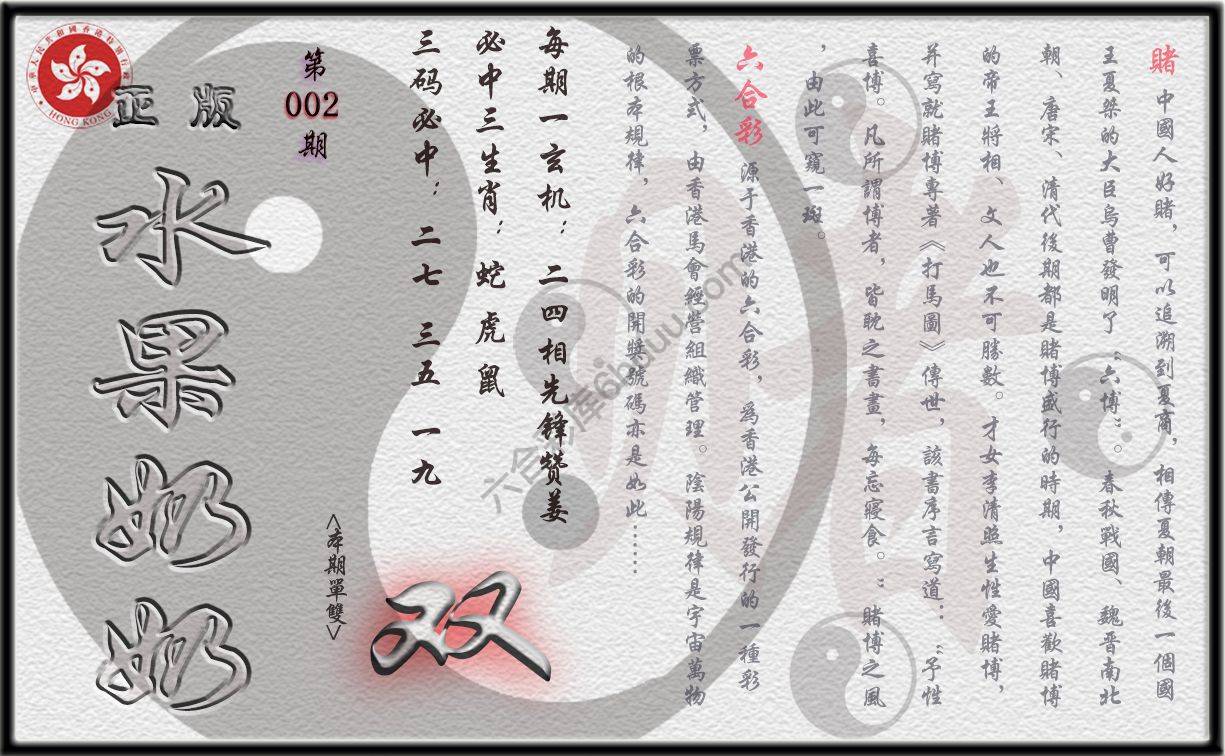 賭 中國人好賭，可以追溯到夏商，相傳夏朝最後一個國
王夏桀的大臣烏曹發明了“六博”。春秋戰國、魏晋南北
朝、唐宋、清代後期都是賭博盛行的時期，中國喜歡賭博
的帝王將相、文人也不可勝數。才女李清照生性愛賭博，
并寫就賭博專著《打馬圖》傳世，該書序言寫道：“予性
喜博。凡所謂博者，皆耽之晝畫，每忘寢食。”賭博之風
，由此可窺一斑。
六合彩 源于香港的六合彩，爲香港公開發行的一種彩
票方式，由香港馬會經營組織管理。陰陽規律是宇宙萬物
的根本規律，六合彩的開獎號碼亦是如此......
每期一玄机：二四相先锋赞姜
必中三生肖：蛇虎鼠
三码必中：二七 三五 一九
第
002
期
<本期單雙>
双
正版
水果奶奶
HONG KONG